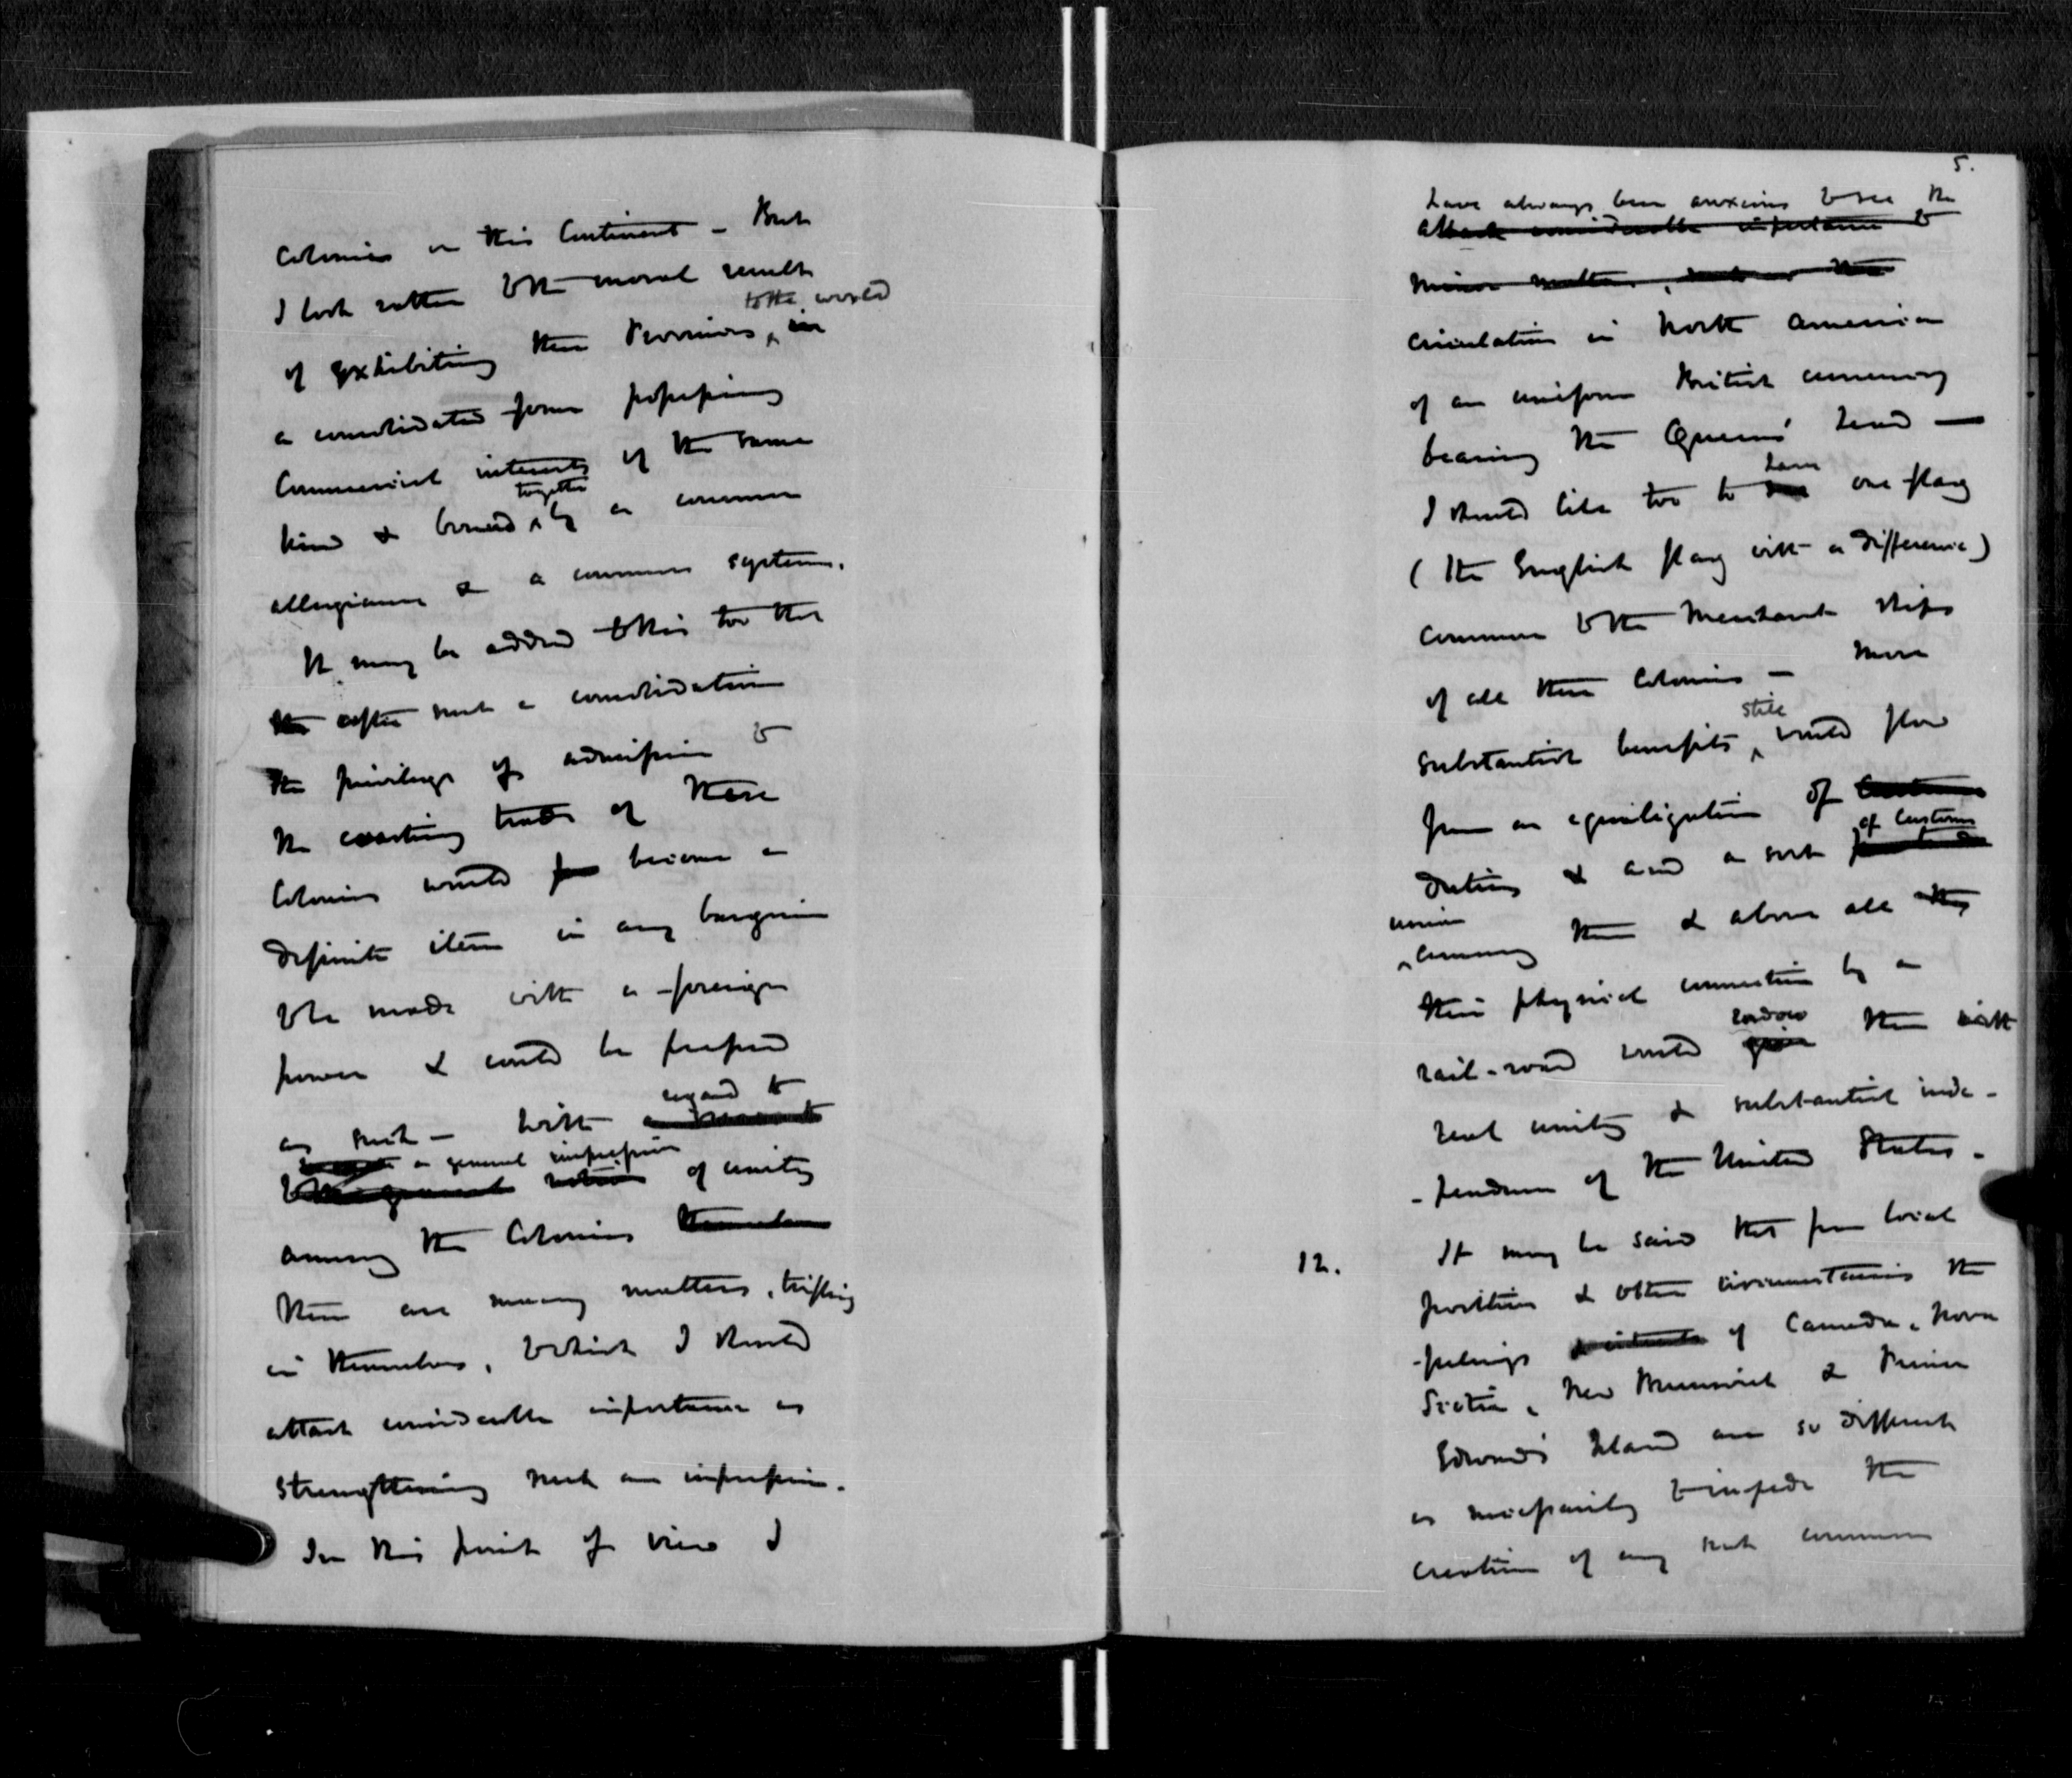 Colonies on this Continent – But
I look rather to the moral results
to the world
of exhibiting these Provinces, in
a consolidated form possessing
Commercial interests of the same
together
kind & bound by a common
allegiance & a common system.
It may be added to this too that
the after such a consolidation
the privilege of admission to
the coasting trade of these
Colonies would become a
definite item in any bargain
to be made with a foreign
power & could be
as such – With
regard to
a general impression
notion of unity
among the Colonies
there are many matters, trifling
in themselves, to which I should
attach considerable importance as
strengthening such an impression.
In this point of view I
5.
have always been anxious to see the
attach considerable importance to
minor matters, such as the
circulation in North America
of an uniform British currency
bearing the Queens' head —
I should like too to have one flag
(the English flag with a difference)
common to the Merchant ships
of all these Colonies – More
still
substantial benefits would flow
from an equalization of
of Customs
duties & and a sort
union
among them & above all
their physical connection by a
endow
rail-road would give them with
real unity & substantial inde-
-pendence of the United States.
12. It may be said that from local
position & other circumstances the
feelings of Canada, Nova
Scotia, New Brunswick & Prince
Edward's Island are so different
as necessarily to impede the
creation of any such common